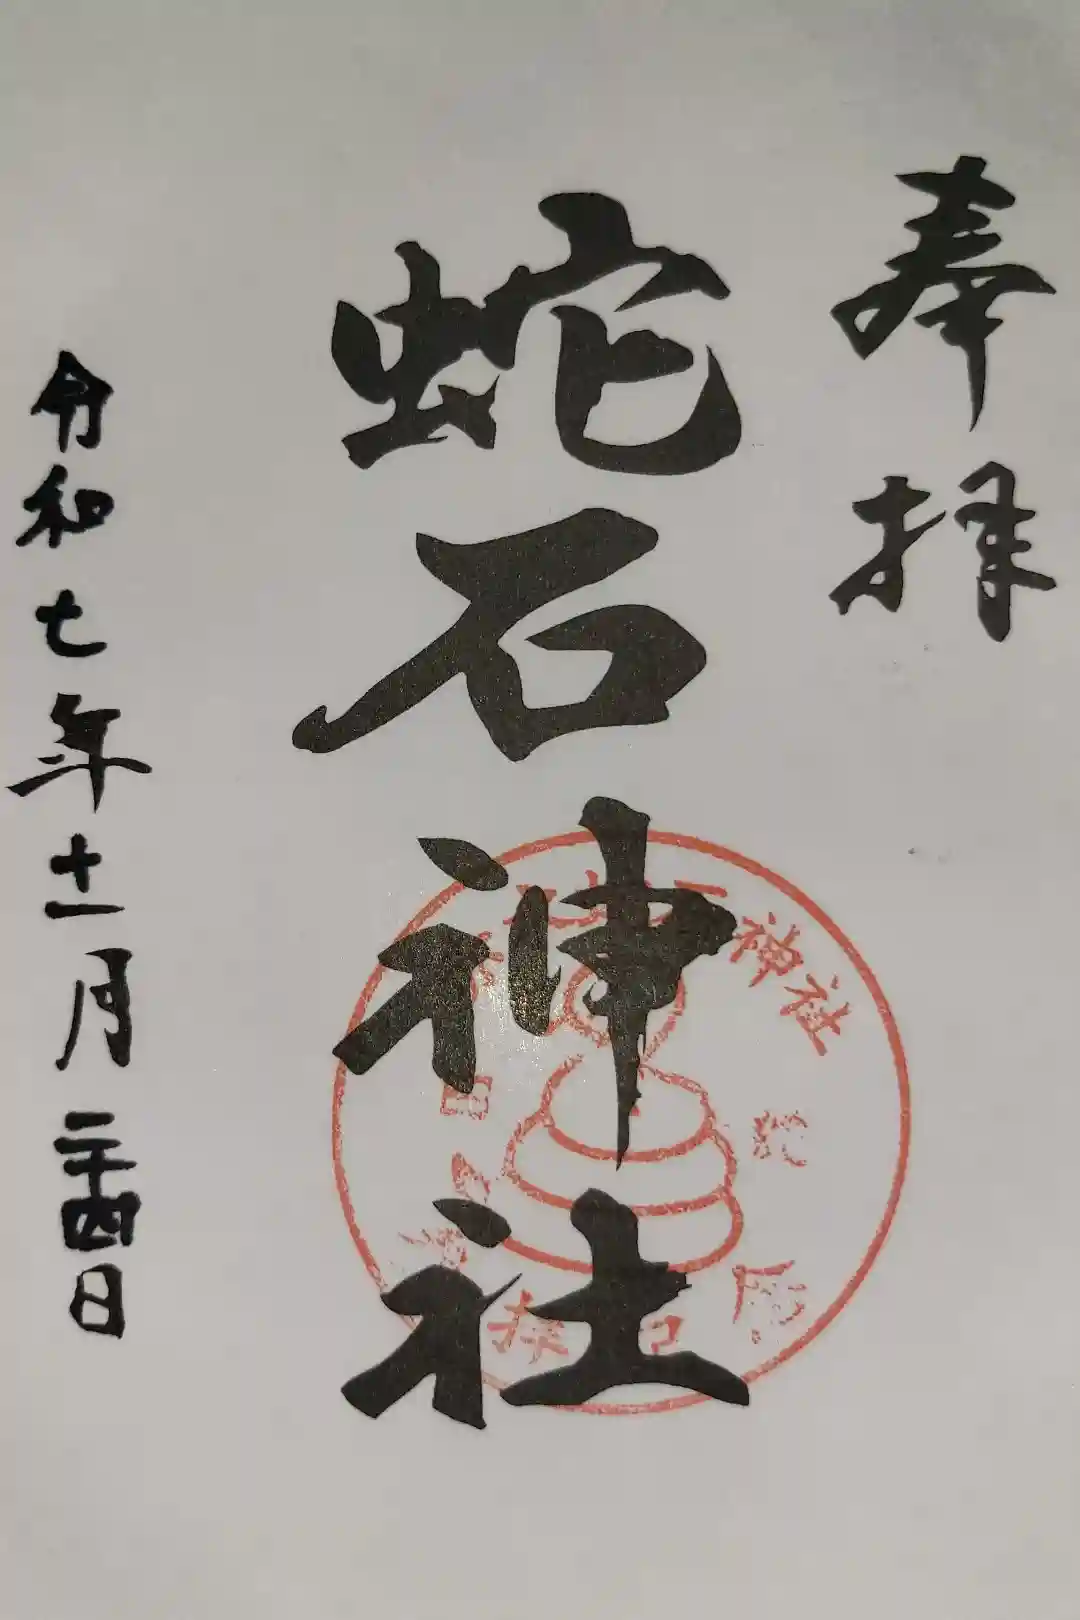 奉拝
蛇石神社
神社
令和七年十一月二十四日